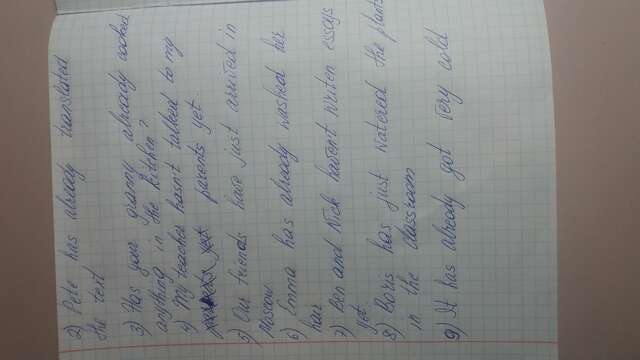 2) Pete has already translated
the text
3) Has your granny already cooked
anything in the kitchen?
4) My teacher hasn't talked to my
parents yet
5) Our friends have just arrived in
Moscow
6) Emma has already washed her
hair
7) Ben and Nick haven't writen essays
yet
8) Boris has just watered the plants
in the classroom
9) It has already got very cold